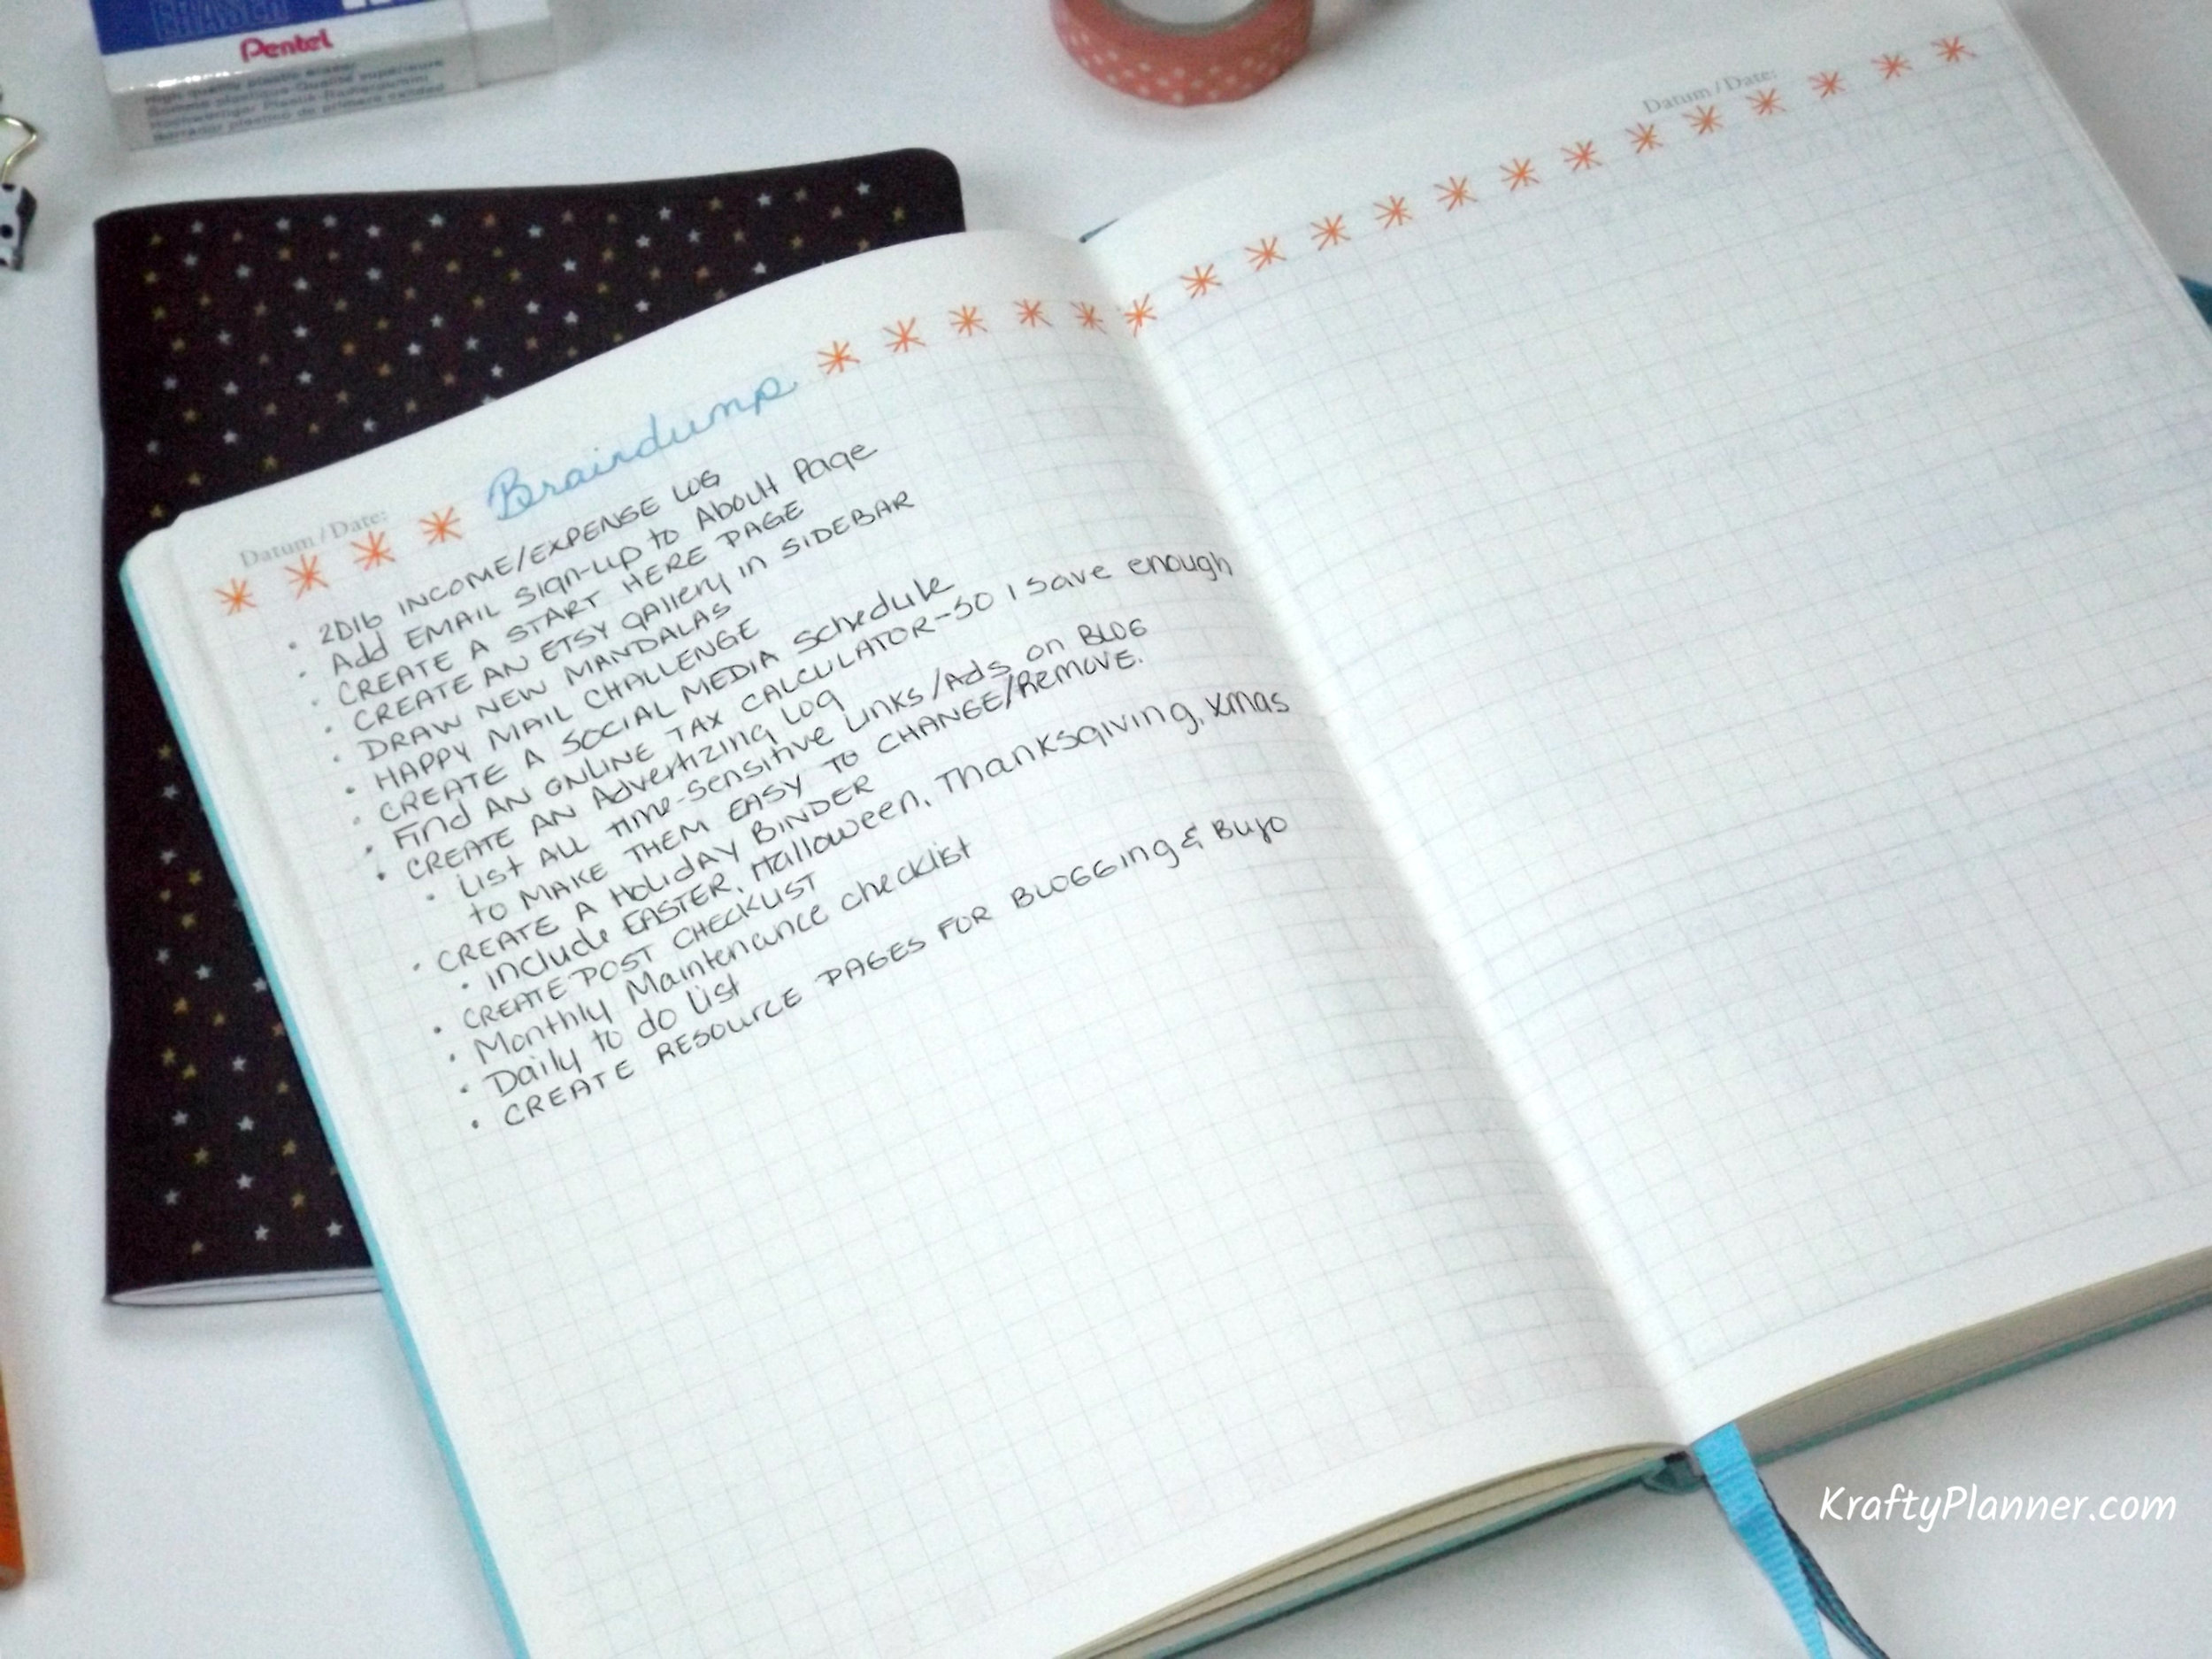 ERASER
Pentel
High quality plastic eraser
Gomme plastique Qualité supérieure
Hochwertiger Plastik-Radiergummi
Borrador plastico de primera calidad
Datum / Date:
Datum / Date:
Braindump
• 2016 INCOME/EXPENSE LOG
• Add EMAIL sign-up to About Page
• CREATE A START HERE PAGE
• CREATE AN ETSY gallery in SIDEBAR
• DRAW NEW MANDALAS
• HAPPY MAIL CHALLENGE
• CREATE A SOCIAL MEDIA Schedule
• Find AN ONLINE TAX CALCULATOR-SO I save enough
• CREATE AN Advertizing LOG
• List ALL time-sensitive Links/Ads on BLOG
to MAKE THEM EASY TO CHANGE/Remove.
• CREATE A Holiday BINDER
• include EASTER, Halloween, Thanksgiving, Xmas
• CREATE POST CHECKLIST
• Monthly Maintenance checklist
• Daily to do List
• CREATE RESOURCE PAGES FOR BLOGGING & BuJo
KraftyPlanner.com